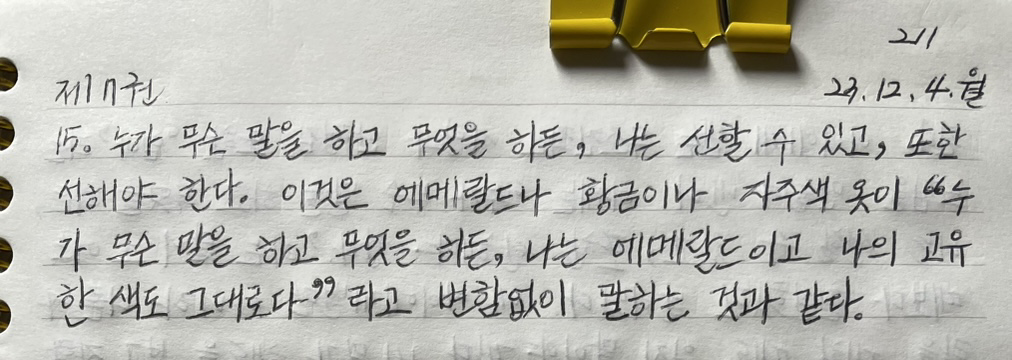 211
제17권 23.12.4.월
15. 누가 무슨 말을 하고 무엇을 하든, 나는 선할 수 있고, 또한
선해야 한다. 이것은 에메랄드나 황금이나 자주색 옷이 “누
가 무슨 말을 하고 무엇을 하든, 나는 에메랄드이고 나의 고유
한 색도 그대로다” 라고 변함없이 말하는 것과 같다.